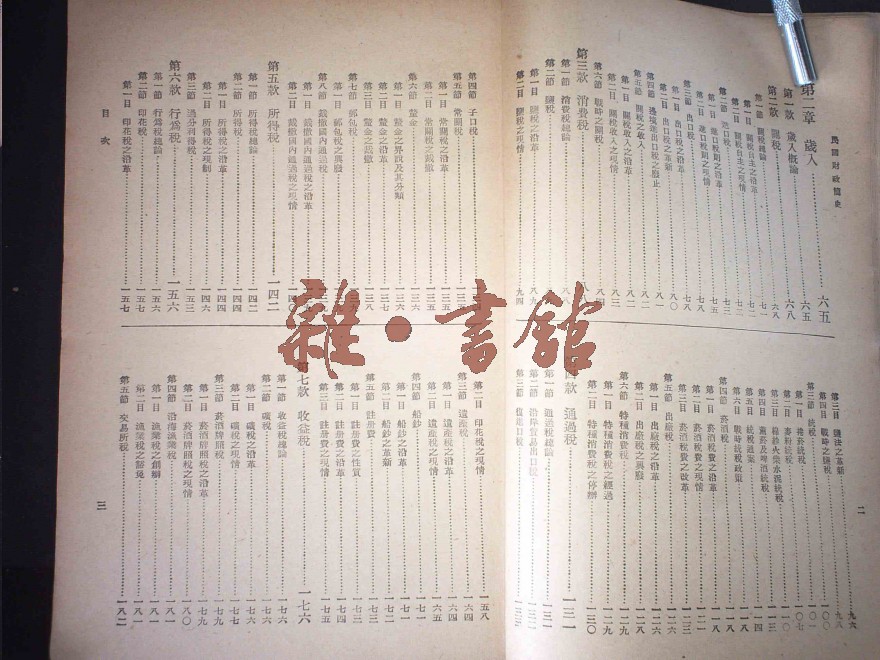 民國財政簡史
第二章 歲入 六五
第一款 歲入概論 六五
第二款 關稅 六八
第一節 關稅總論
第一目 關稅自主之沿革
第二目 關稅自主之現情
第二節 進口稅
第一目 進口稅則之沿革
第二目 進口稅則之現情
第三節 出口稅
第一目 出口稅之沿革
第二目 出口稅之革新
第四節 邊境進出口稅之廢止
第五節 關稅之收入
第一目 關稅收入之沿革
第二目 關稅收入之現情
第六節 戰時之關稅
第三款 消費稅
第一節 消費稅總論
第二節 鹽稅
第一目 鹽稅之沿革
第二目 鹽稅之現情 九四
第三目 鹽法之革新 九六
第四目 戰時之鹽稅
第三節 統稅
第一目 捲菸統稅
第二目 麥粉統稅
第三目 棉紗火柴水泥統稅
第四目 薰菸及啤酒統稅
第五目 統稅通案
第六目 戰時統稅政策
第四節 菸酒稅
第一目 菸酒稅費之沿革
第二目 菸酒稅費之現情
第三目 菸酒稅費之改革
第五節 出廠稅
第一目 出廠稅之沿革
第二目 出廠稅之興廢
第六節 特種消費稅 一二九
第一目 特種消費稅之經過 一二九
第二目 特種消費稅之停辦 一三〇
四款 通過稅 一三一
第一節 通過稅總論 一三一
第二節 沿岸貿易出口稅
第三節 復進口稅
二
第四節 子口稅
第五節 常關稅
第一目 常關稅之沿革 一三五
第二目 常關稅之裁撤 一三五
第六節 釐金 一三六
第一目 釐金之界說及其分類 一三六
第二目 釐金之沿革 一三七
第三目 釐金之裁撤 一三八
第七節 郵包稅
第一目 郵包稅之興廢
第八節 裁撤國內通過稅
第一目 裁撤國內通過稅之沿革
第二目 裁撤國內通過稅之現情
第五款 所得稅 一四二
第一節 所得稅總論 一四二
第二節 所得稅 一四四
第一目 所得稅之沿革 一四四
第二目 所得稅之現制 一四六
第三節 過分利得稅 一五三
第六款 行為稅 一五六
第一節 行為稅總論 一五六
第二節 印花稅 一五七
第一目 印花稅之沿革 一五七
目次
第二目 印花稅之現情 一五八
第三節 遺產稅 一六四
第一目 遺產稅之沿革 一六四
第二目 遺產稅之現情 一六五
第四節 船鈔 一七一
第一目 船鈔之沿革 一七一
第二目 船鈔之革新 一七二
第五節 註冊費 一七三
第一目 註冊費之性質 一七三
第二目 註冊費之沿革 一七四
第三目 註冊費之現情 一七五
第七款 收益稅 一七六
第一節 收益稅總論 一七六
第二節 礦稅 一七六
第一目 礦稅之沿革 一七六
第二目 礦稅之現情 一七七
第三節 菸酒牌照稅 一七九
第一目 菸酒牌照稅之沿革 一七九
第二目 菸酒牌照稅之現情 一八〇
第四節 沿海漁業稅 一八一
第一目 漁業稅之創辦 一八一
第二目 漁業稅之豁免 一八一
第五節 交易所稅 一八二
三
雜·書館